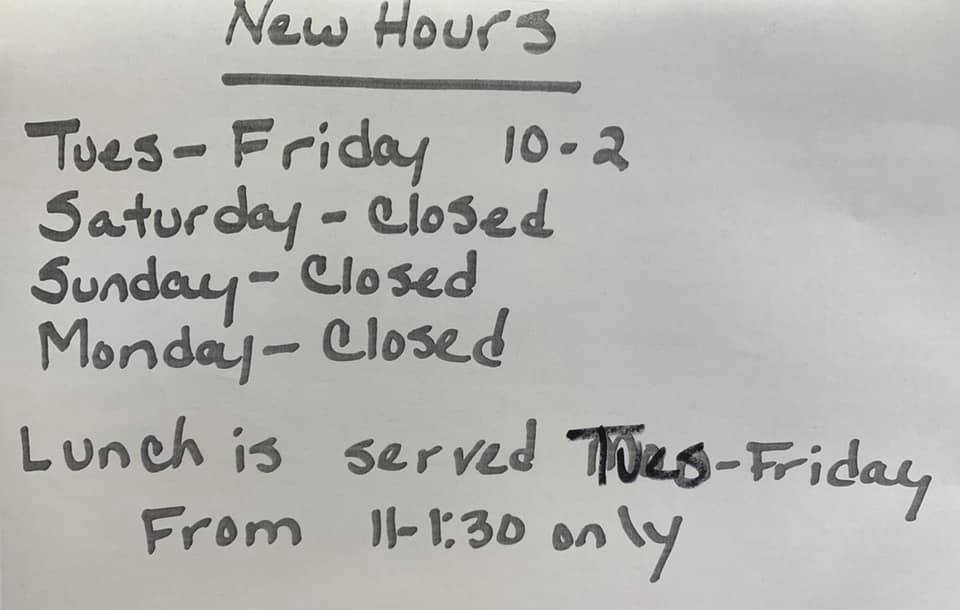 New Hours
Tues - Friday 10 - 2
Saturday - Closed
Sunday - Closed
Monday - Closed
Lunch is served Tues - Friday
From 11-1:30 only